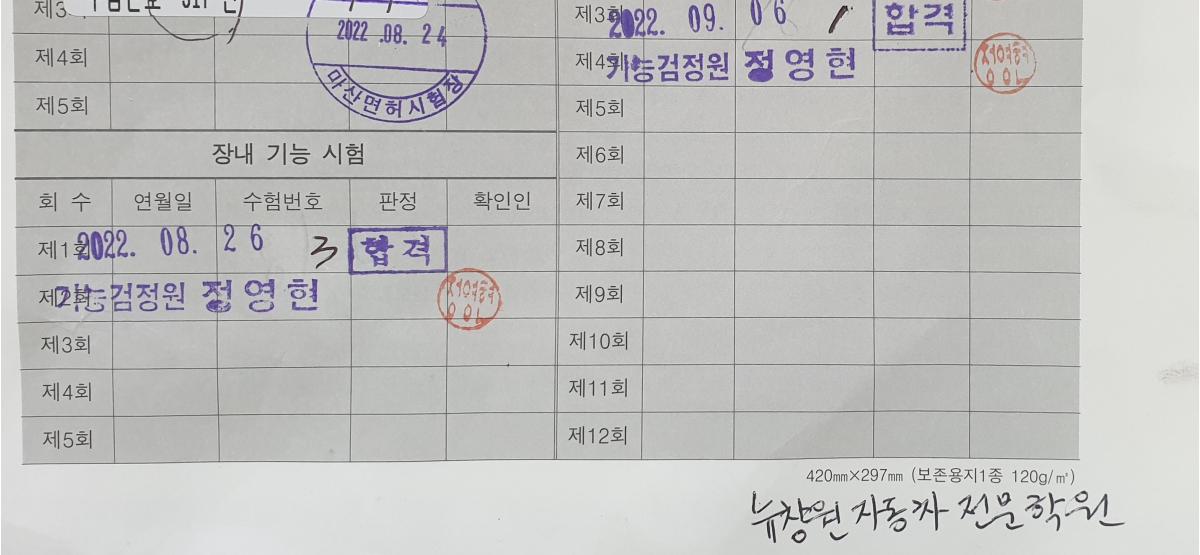 제3
2022 .08. 24
제4회
마산면허시험장
제5회
장내 기능 시험
회 수 연월일 수험번호 판정 확인인
제1회 2022. 08. 26 3 합격
제2회 기능검정원 정영현
제3회
제4회
제5회
제3회 2022. 09. 06 1 합격
제4회 기능검정원 정영현
제5회
제6회
제7회
제8회
제9회
제10회
제11회
제12회
420㎜×297㎜ (보존용지1종 120g/㎡)
뉴창원자동차 전문학원